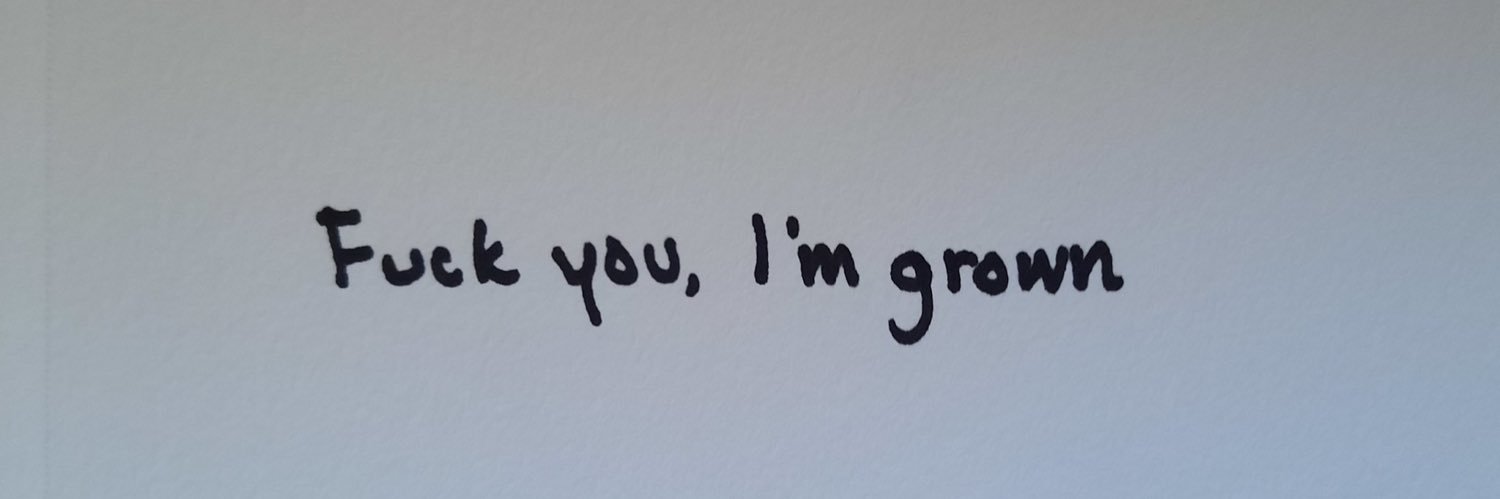 Fuck you, I'm grown